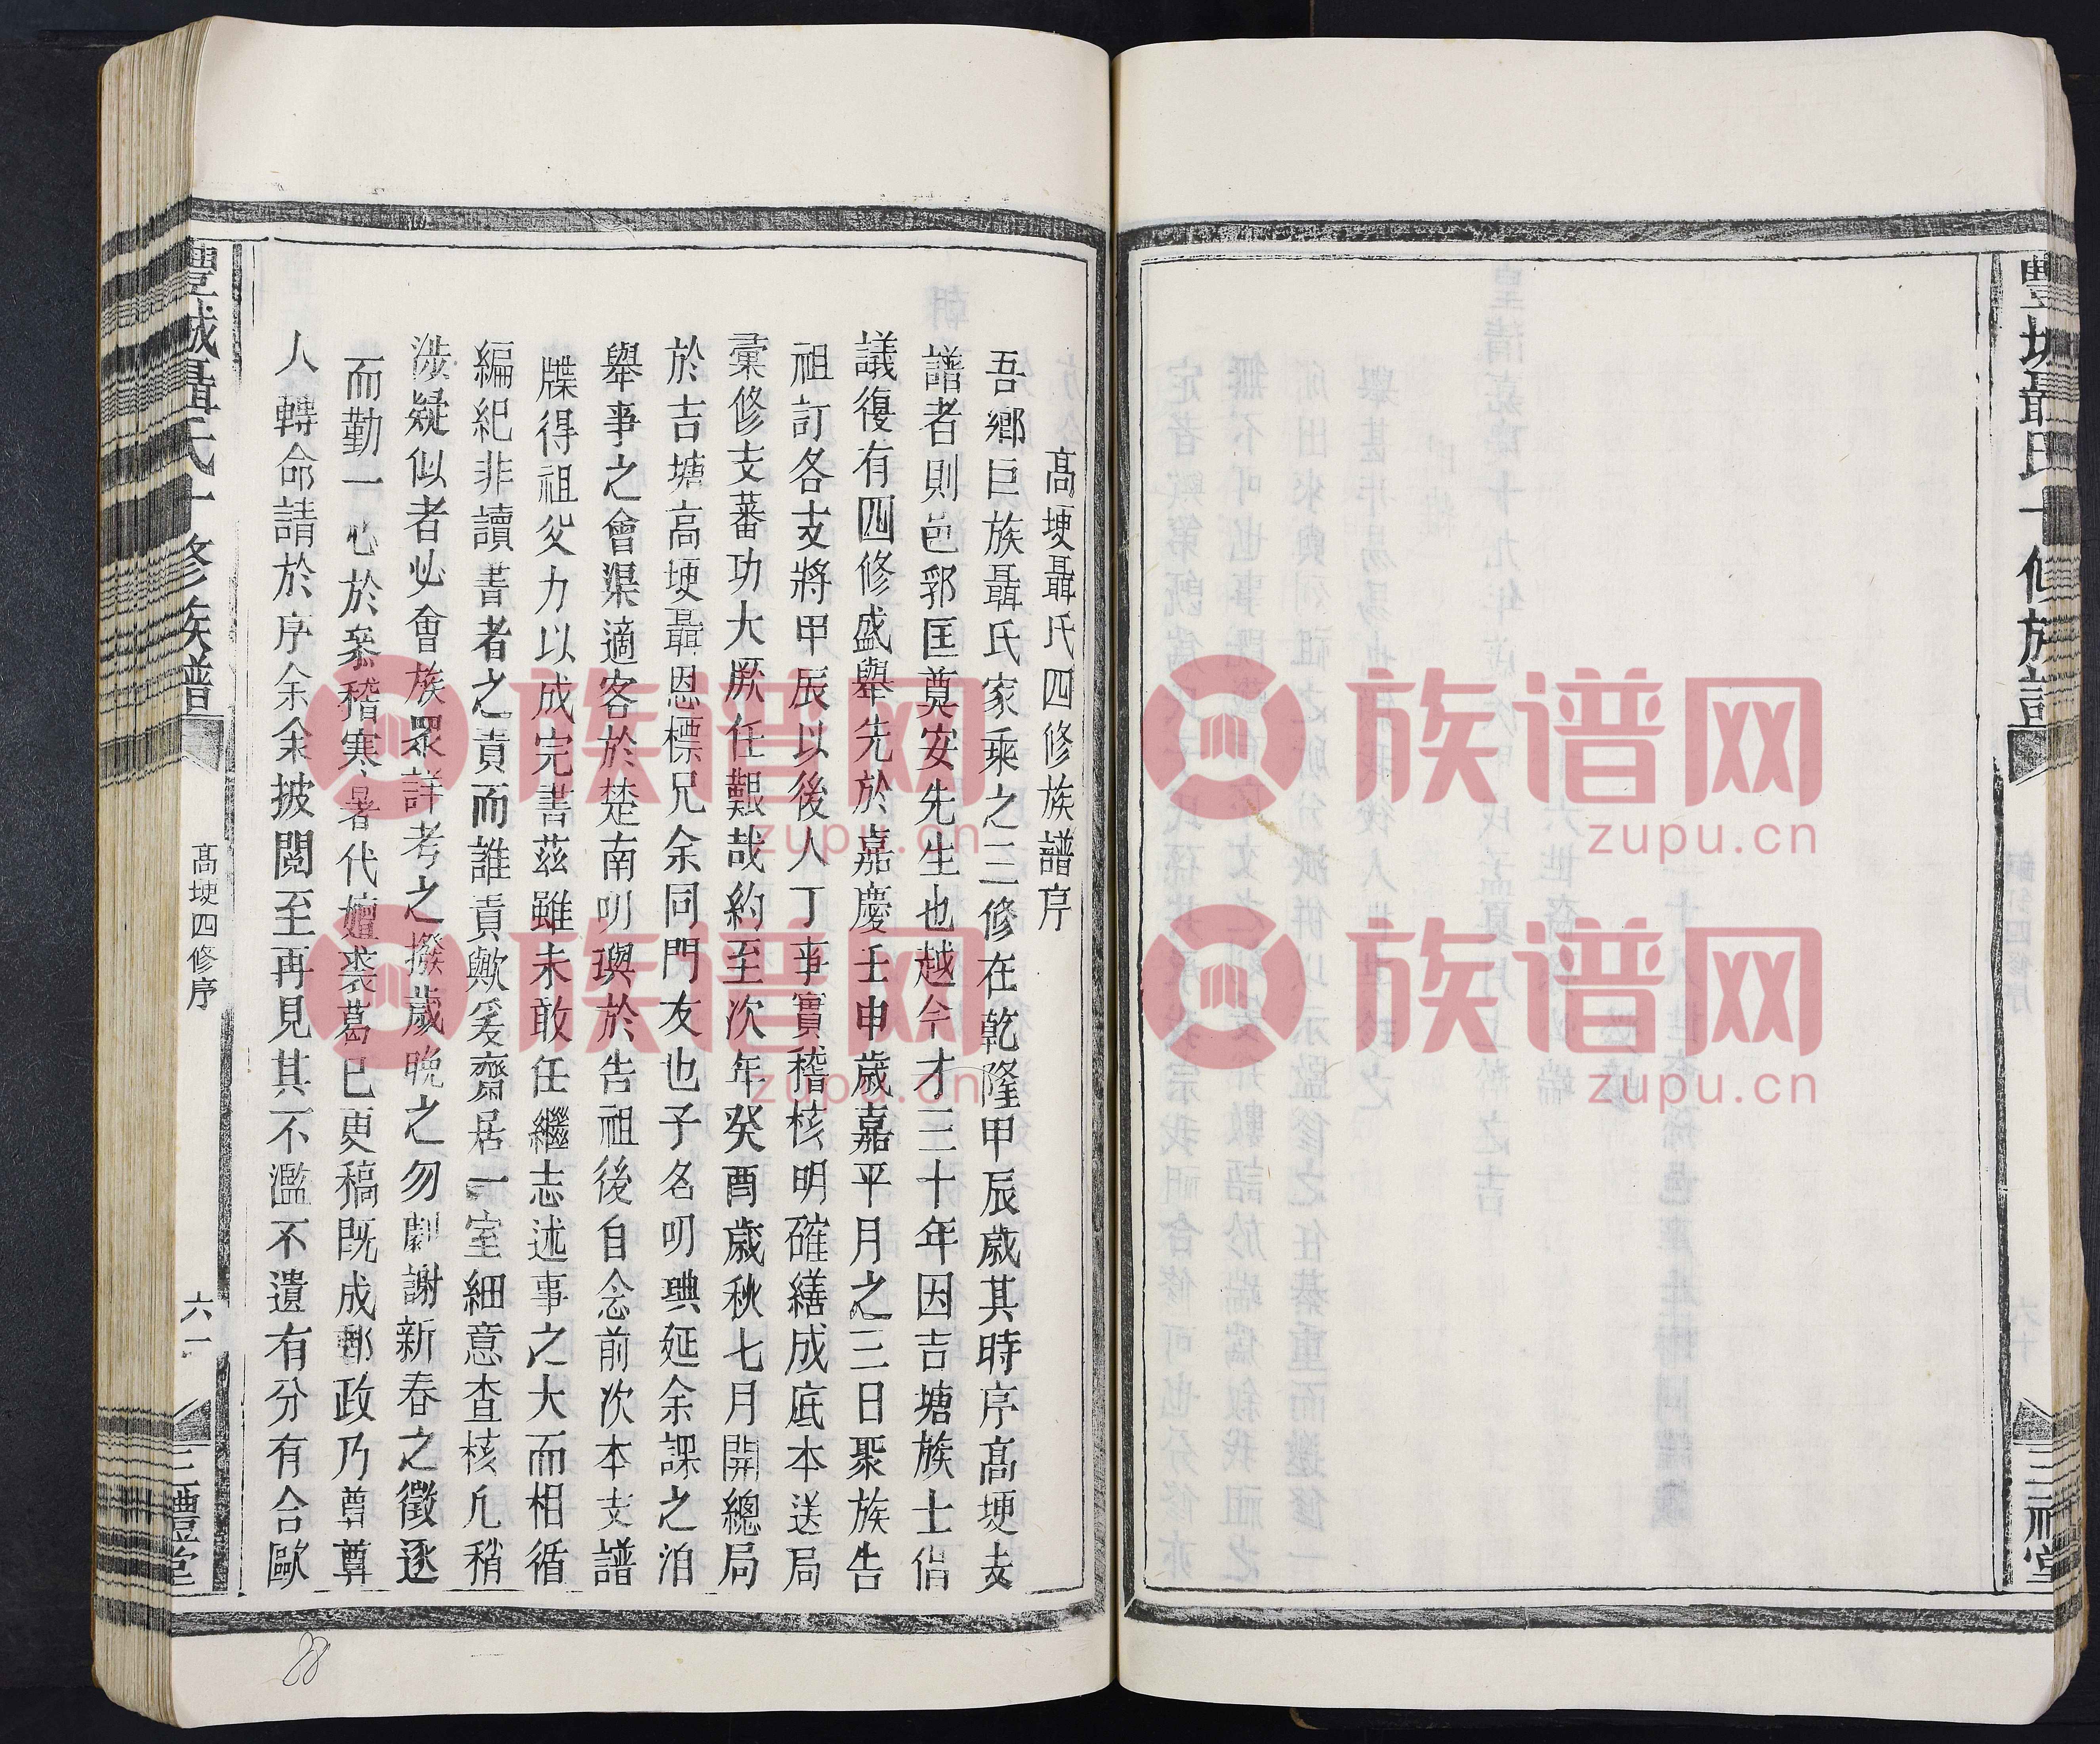 高埂聶氏四修族譜序
吾鄉巨族聶氏家乘之三修在乾隆甲辰歲其時序高埂支
譜者則邑郭匡奠安先生也越今才三十年因吉塘族士侣
議復有四修盛舉先於嘉慶壬申歲嘉平月之三日聚族告
祖訂各支將甲辰以後人丁事實稽核明確繕成底本送局
彙修支蕃功大厥任艱哉約至次年癸酉歲秋七月開總局
於吉塘高埂聶恩標兄余同門友也子名叨琠延余課之洎
舉事之會渠適客於楚南叨璵於告祖後自念前次本支譜
牒得祖父力以成完書茲雖未敢任繼志述事之大而相循
編紀非讀書者之責而誰責歟爰齋居一室細意查核凡稍
涉疑似者必會族眾詳考之撥歲晚之勿劇謝新春之徵逐
而勤一心於叅稽寒暑代嬗裘葛已更稿既成郵政乃尊尊
人轉命請於序余余披閱至再見其不濫不遺有分有合歐
豐城聶氏十修族譜
高埂四修序
六一
三禮堂
豐城聶氏十修族譜
三禮堂
88
族谱网
zupu.cn
族谱网
zupu.cn
族谱网
zupu.cn
族谱网
zupu.cn